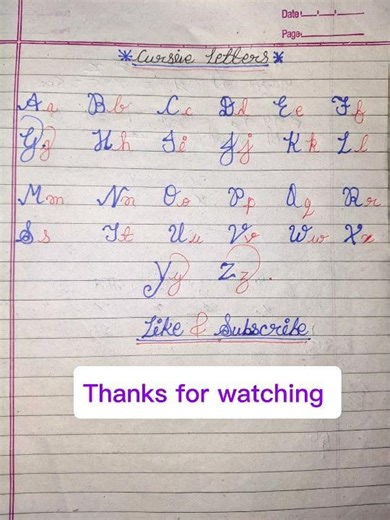 Date:
Page:
*Cursive Letters*
Aa Bb Cc Dd Ee Ff
Gg Hh Ii Jj Kk Ll
Mm Nn Oo Pp Qq Rr
Ss Tt Uu Vv Ww Xx
Yy Zz
Like & Subscribe
Thanks for watching